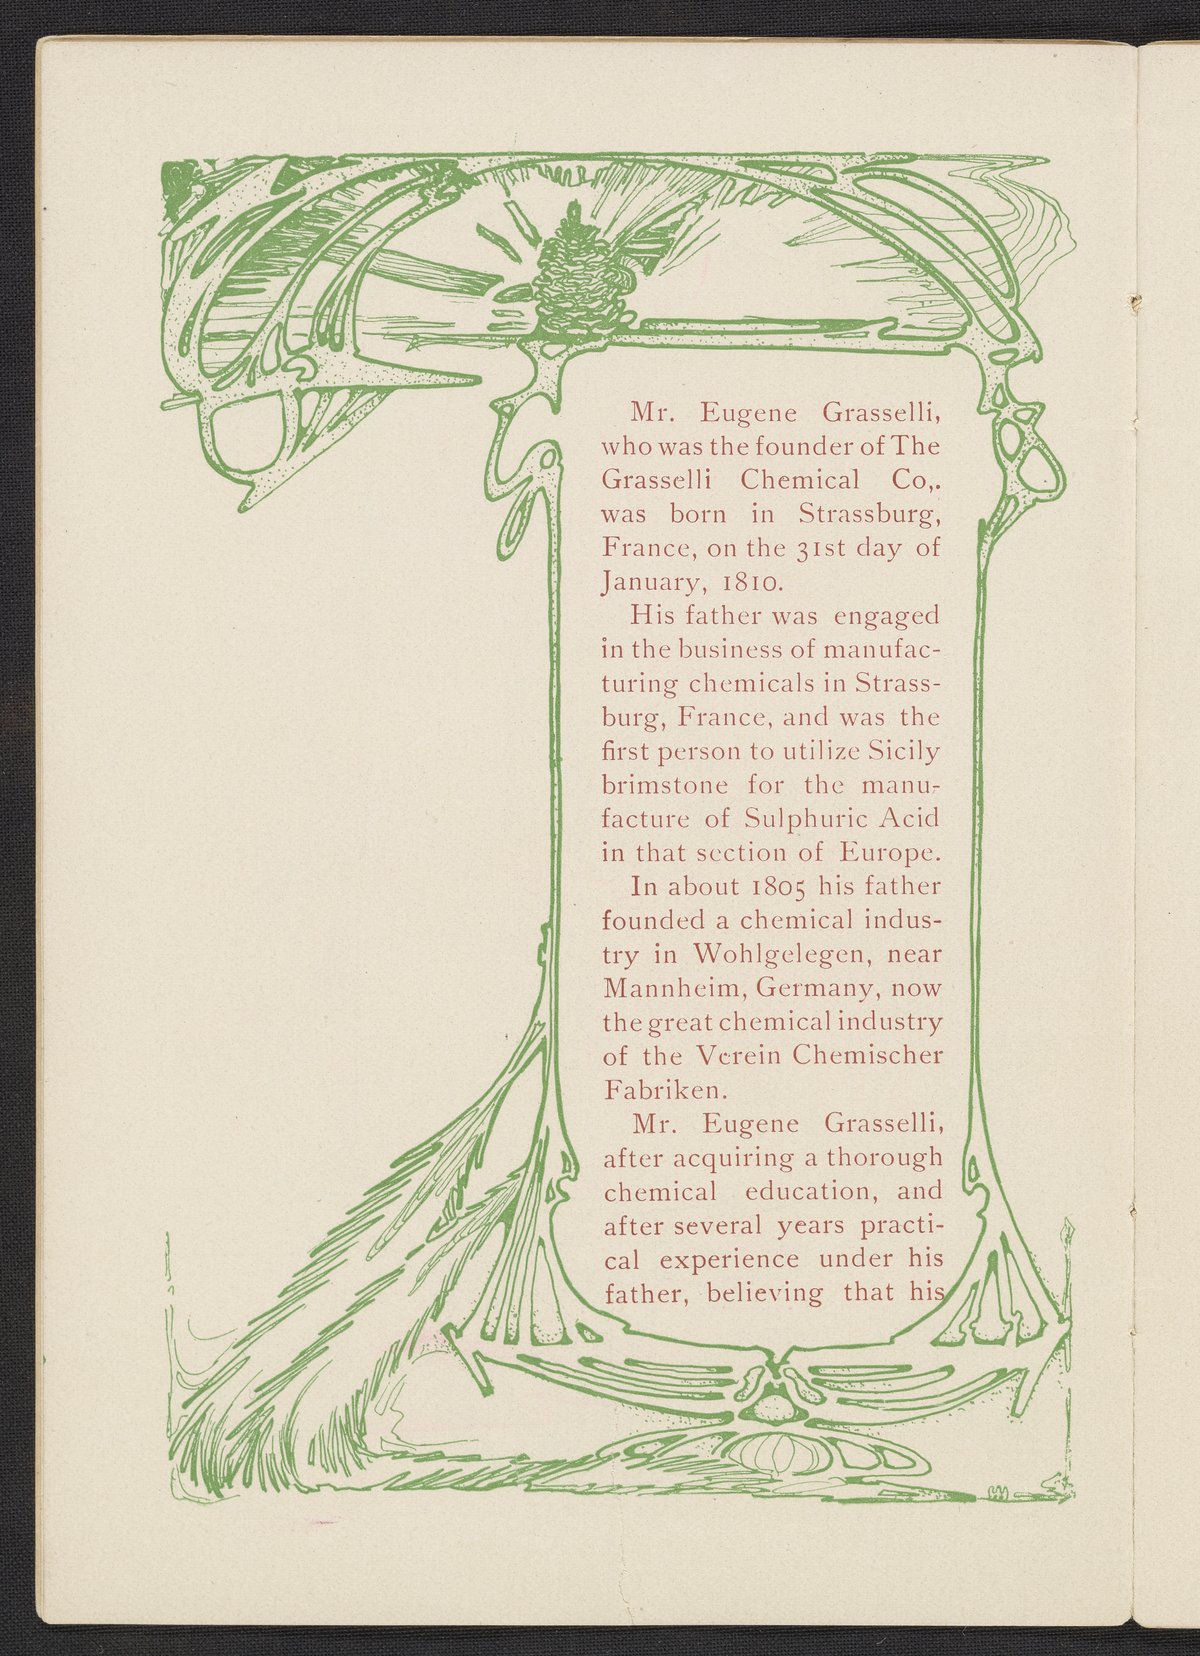 Mr. Eugene Grasselli,
who was the founder of The
Grasselli Chemical Co,.
was born in Strassburg,
France, on the 31st day of
January, 1810.
His father was engaged
in the business of manufac-
turing chemicals in Strass-
burg, France, and was the
first person to utilize Sicily
brimstone for the manu-
facture of Sulphuric Acid
in that section of Europe.
In about 1805 his father
founded a chemical indus-
try in Wohlgelegen, near
Mannheim, Germany, now
the great chemical industry
of the Verein Chemischer
Fabriken.
Mr. Eugene Grasselli,
after acquiring a thorough
chemical education, and
after several years practi-
cal experience under his
father, believing that his